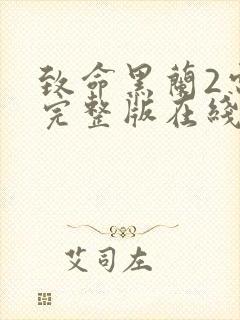 致命黑蘭2
完整版在綫
艾司左